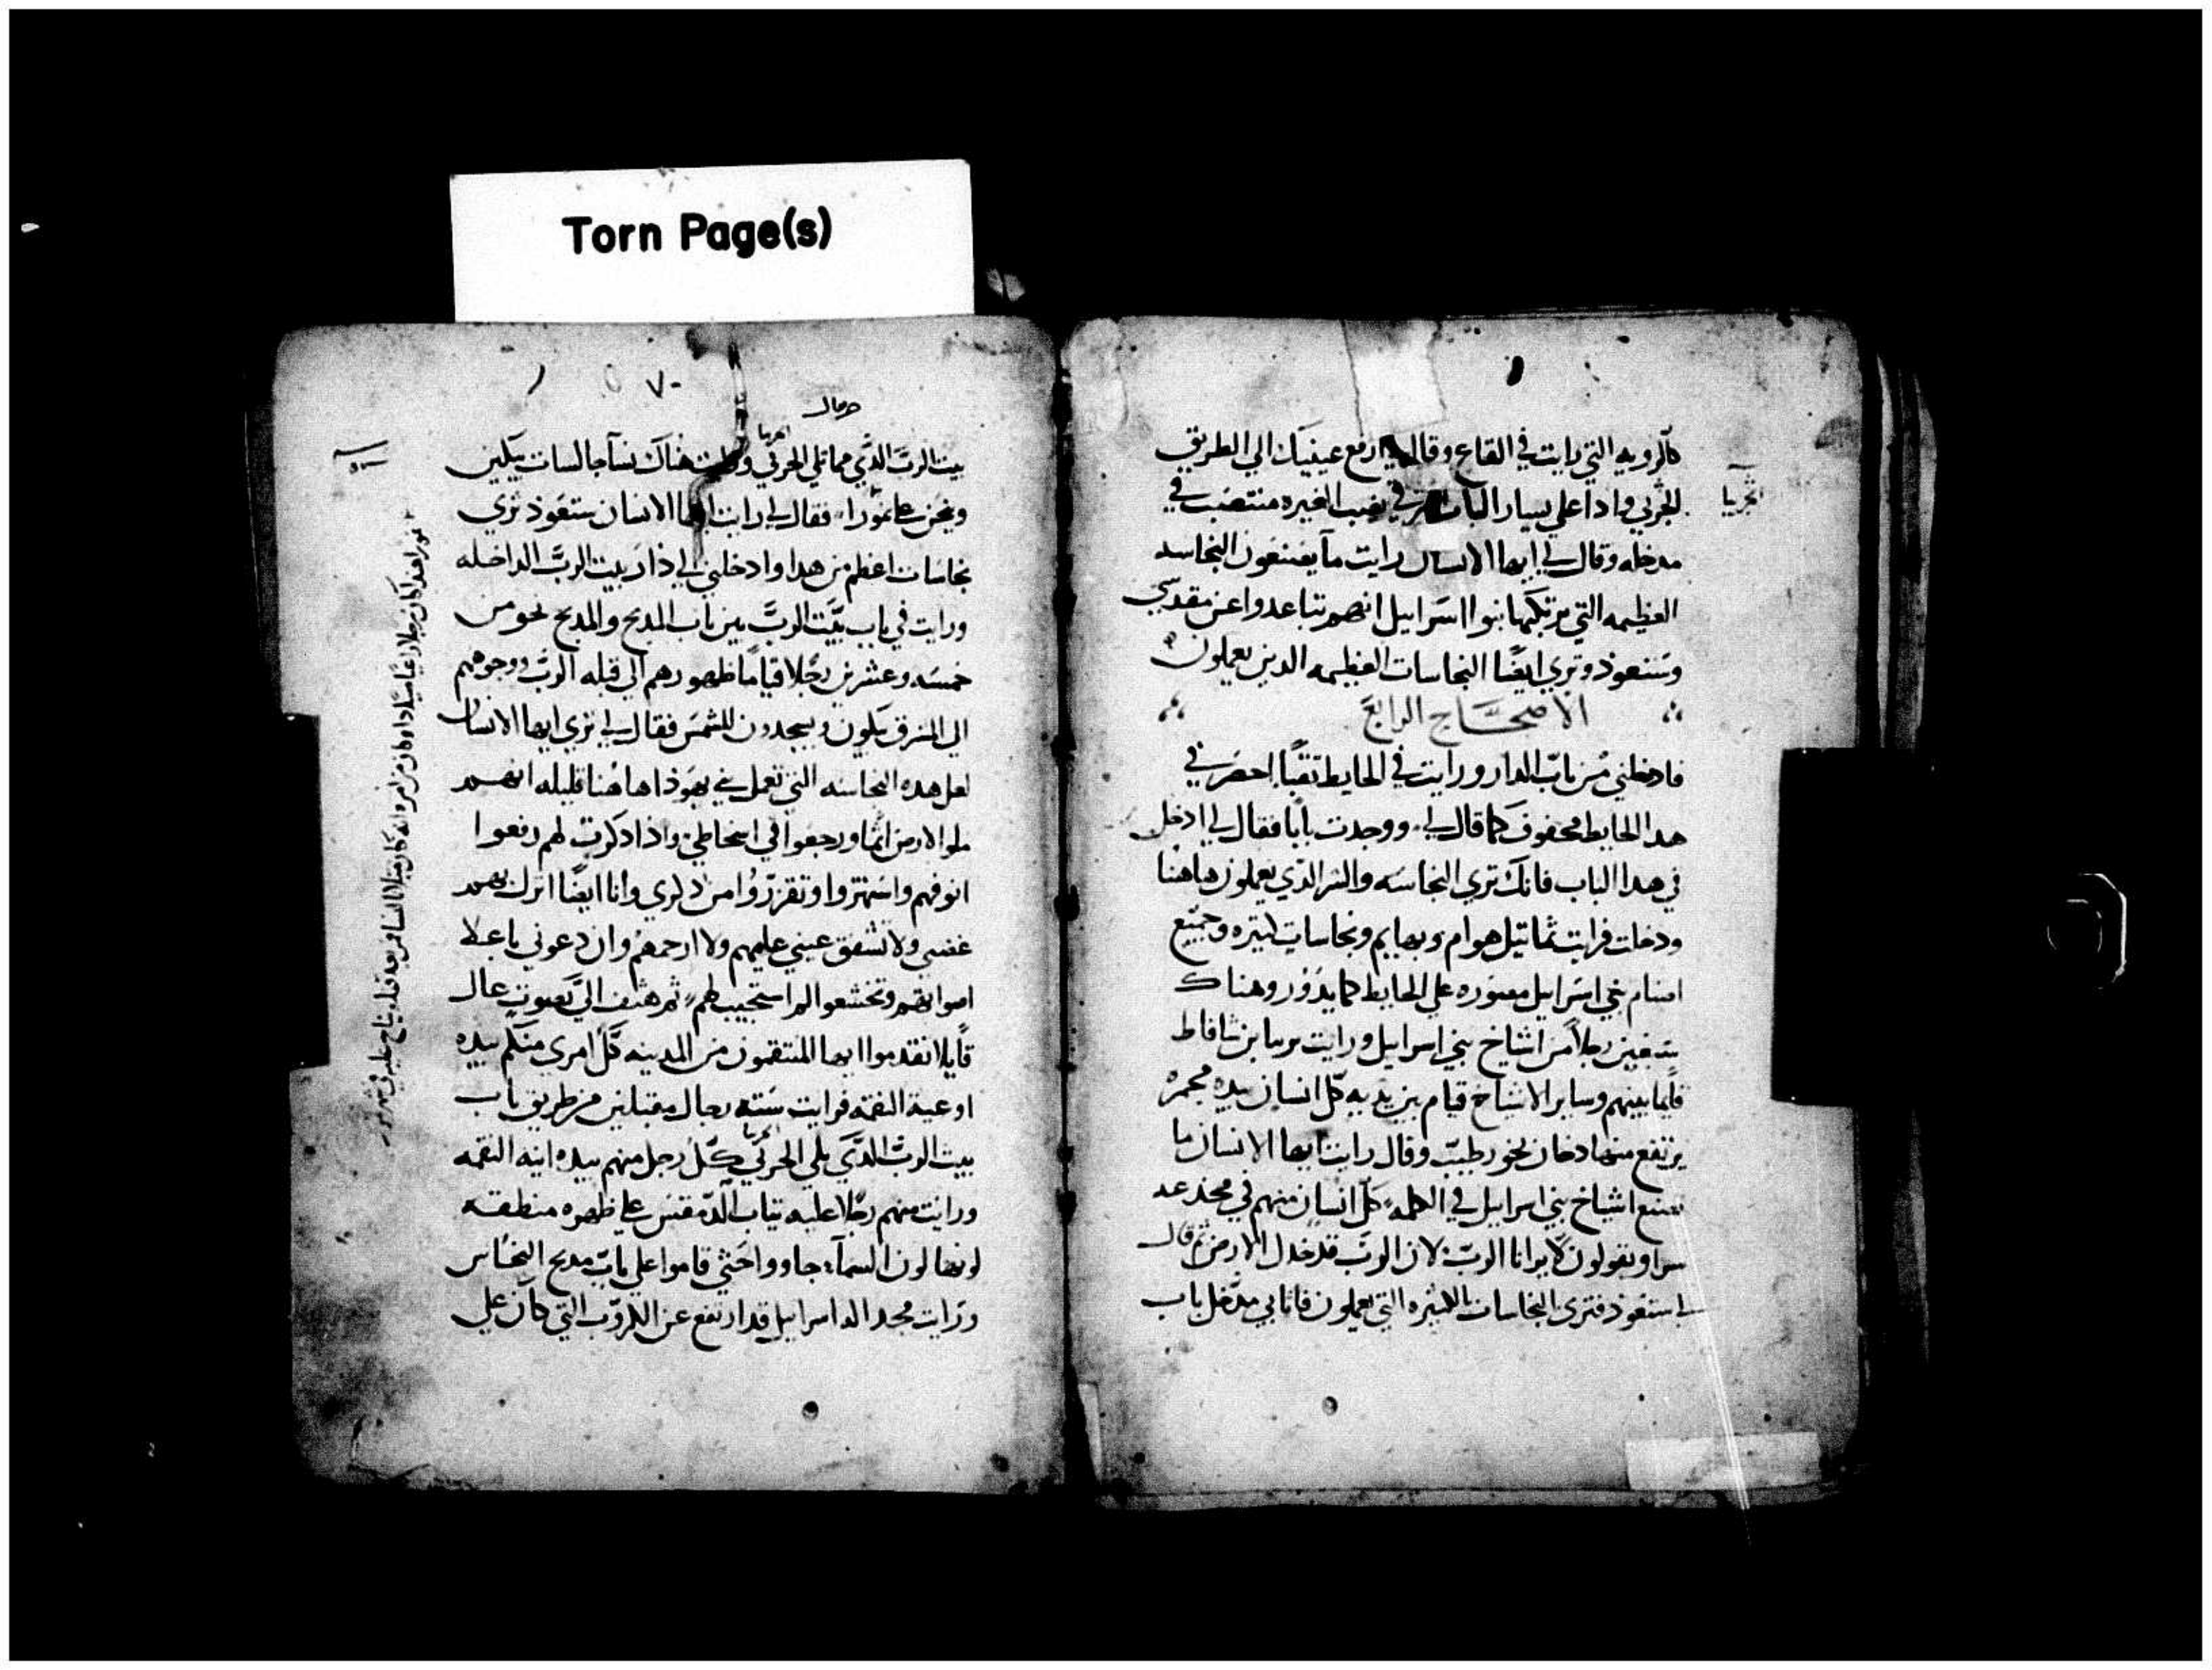 Torn Page(s)
كالرويه التي رايت في القاع وقال لي ارفع عينيك الي الطريق
الجربي واذا علي يسار الباب الشرقي نصب الغيره منتصب في
مدخله وقال لي ايها الانسان رايت ما يصنعون النجاسه
العظيمه التي يرتكبها بنوا اسرايل انهم تباعدوا عن مقدسي
وستعود وتري ايضًا النجاسات العظيمه الدين يعملون
الاصحاح الرابع
فادخلني من باب الدار ورايت في الحايط نقبًا احضر في
هدا الحايط محفوف كما قال لي ووجدت بابا فقال لي ادخل
في هدا الباب فانك تري النجاسه والشر الدي يعملون هاهنا
ودخلت فرايت تماتيل هوام وبهايم ونجاسات كتيره وجميع
اصنام بني اسرايل مصوره علي الحايط كما يدور وهناك
سبعين رجلاً من اشياخ بني اسرايل ورايت برسا بن شافاط
قايما بينهم وساير الاشياخ قيام بين يديه كل انسان بيده مجمره
يرتفع منها دخان بخور طيب وقال رايت ايها الانسان ما
تصنع اشياخ بني اسرايل في الظلمه كل انسان منهم في مخدعه
سرا ويقولون لا يرانا الرب لان الرب قد خدل الارض ثم قال
لي ستعود فتري النجاسات الكتيره التي يعملون فاتا بي مدخل باب
البحريا
حزقيال
٧٠
بيت الرب الدي مما يلي الجربي ورايت هناك نسآ جالسات يبكين
وينحن علي تمورا فقال لي رايت ايها الانسان ستعود تري
نجاسات اعظم من هدا وادخلني الي دار بيت الرب الداخله
ورايت في باب بيت الرب بين باب المدبح والمدبح نحو من
خمسه وعشرين رجلا قيامًا ظهورهم الي قبله الرب ووجوههم
الي المشرق يبكون ويسجدون للشمس فقال لي تري ايها الانسان
لعل هده النجاسه التي تعمل بني يهودا هاهنا قليله انهم
ملوا الارض اثما ورجعوا في اسخاطي واذا دكرت لهم رفعوا
انوفهم واستهتروا وتقززوا من دكري وانا ايضًا انزل بهم
غضبي ولا تشفق عيني عليهم ولا ارحمهم وان دعوني باعلا
اصواتهم وتخشعوا لم استجيب لهم ثم هتف الي بصوت عال
قايلا تقدموا ايها المنتقمون من المدينه كل امري منكم بيده
اوعية النقمه فرايت سته رجال مقبلين من طريق باب
بيت الرب الدي يلي الجربي كل رجل منهم بيده انيه النقمه
ورايت منهم رجلا عليه تياب الدمقس علي ظهره منطقه
لونها لون السمآ جاووا حتي قاموا علي باب مدبح النحاس
ورايت مجد اله اسرايل قد ارتفع عن الكروب التي كان علي